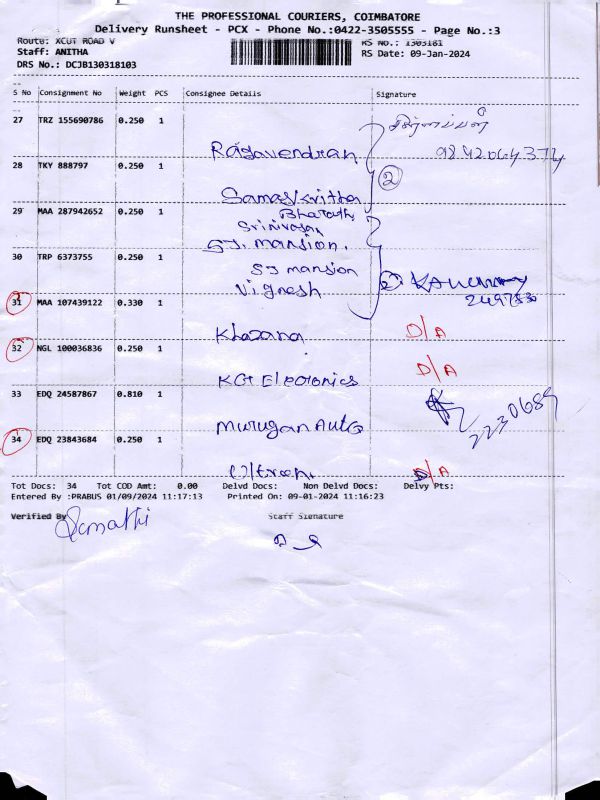 THE PROFESSIONAL COURIERS, COIMBATORE
Delivery Runsheet - PCX - Phone No.:0422-3505555 - Page No.:3
Route: XCUT ROAD V
RS No.: 1303181
Staff: ANITHA
RS Date: 09-Jan-2024
DRS No.: DCJB130318103
S No Consignment No Weight PCS Consignee Details Signature
27 TRZ 155690786 0.250 1
Ragavendran 9842064374
28 TKY 888797 0.250 1
2
Samaskritha
29 MAA 287942652 0.250 1
Bharath
Srinivasan
SJ. mansion.
30 TRP 6373755 0.250 1
SJ mansion
Vignesh 2
31 MAA 107439122 0.330 1
Khazana D/A
32 NGL 100036836 0.250 1
KGT Electronics D/A
33 EDQ 24587867 0.810 1
Murugan Auto 2230689
34 EDQ 23843684 0.250 1
D/A
Tot Docs: 34 Tot COD Amt: 0.00 Delvd Docs: Non Delvd Docs: Delvy Pts:
Entered By :PRABUS 01/09/2024 11:17:13 Printed On: 09-01-2024 11:16:23
Verified By Staff Signature